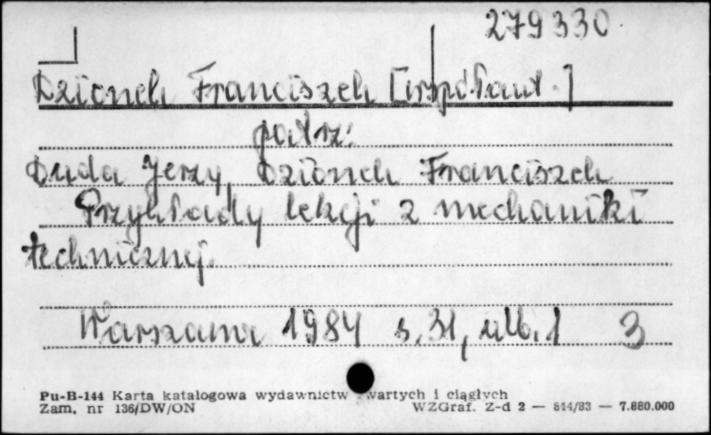 279330
Dzionek Franciszek [współaut.]
patrz:
Duda Jerzy, Dzionek Franciszek
Przykłady lekcji z mechaniki
technicznej.
Warszawa 1984 s. 31, nlb. 1 3
Pu-B-144 Karta katalogowa wydawnictw zwartych i ciągłych
Zam. nr 136/DW/ON WZGraf. Z-d 2 — 814/83 — 7.880.000